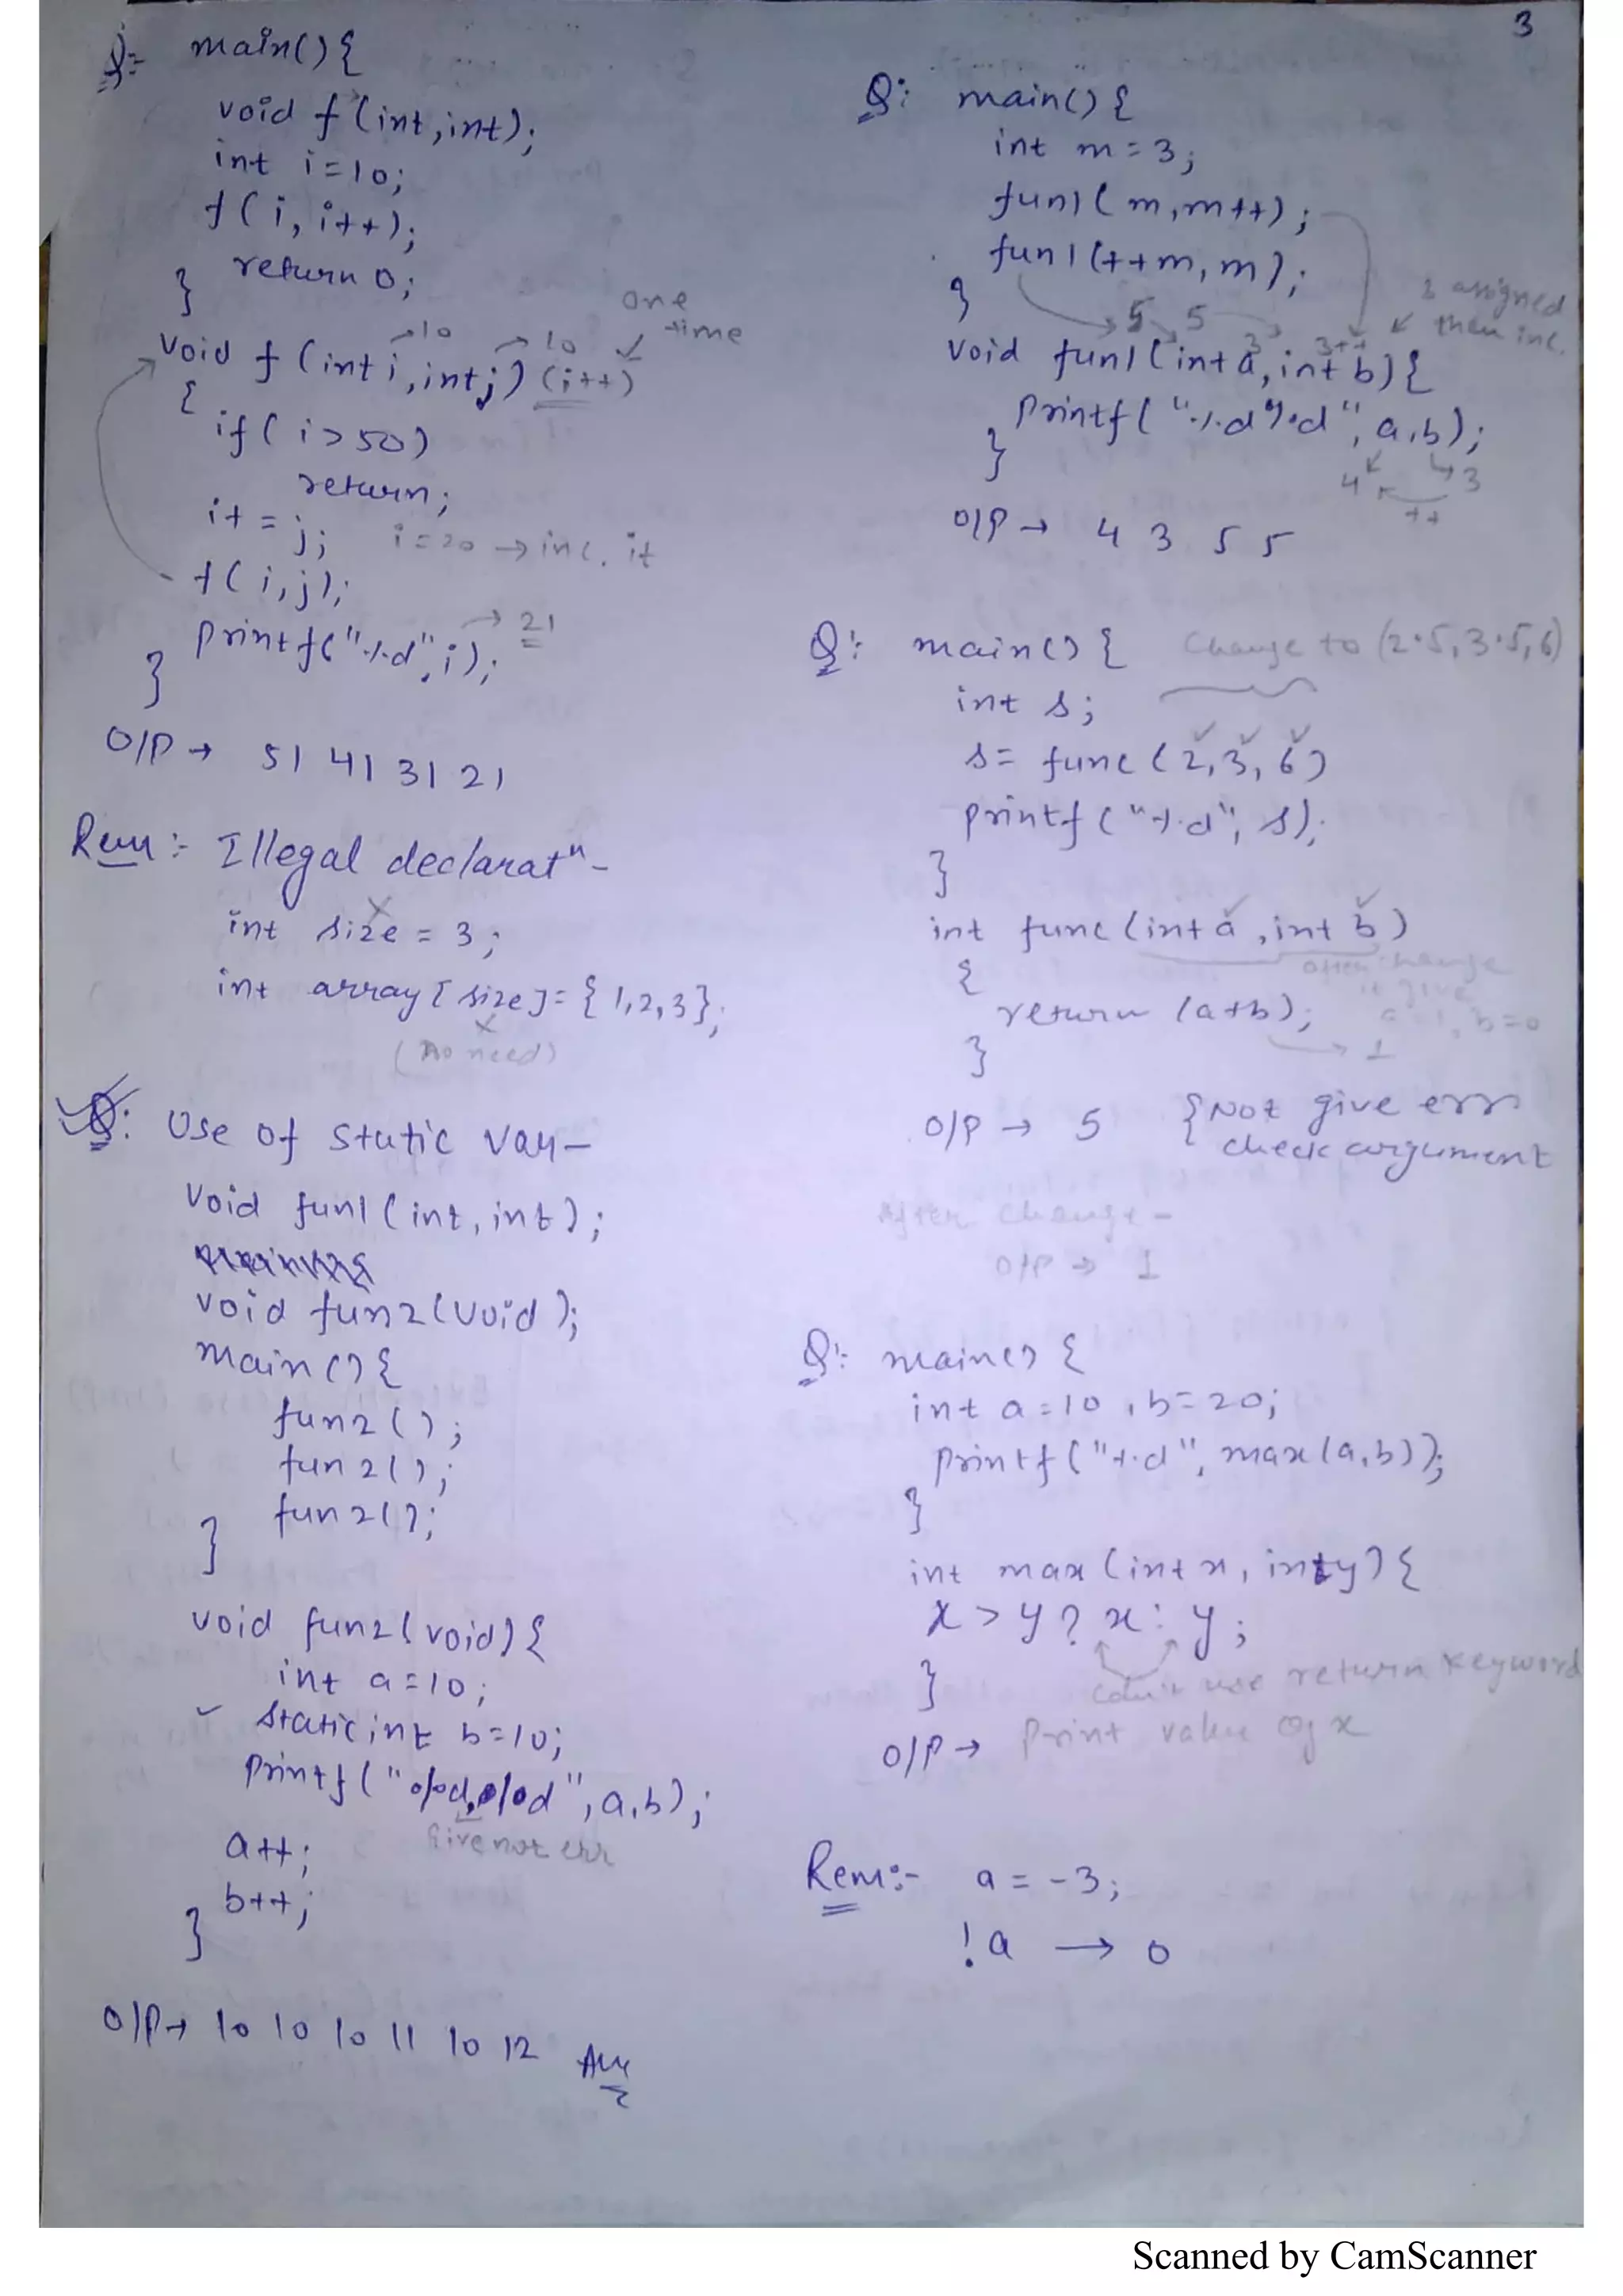 3
Q:- main() {
void f (int, int);
int i=10;
f( i, i++);
return 0;
}
one
time
→10 → 10
void f (int i, int j) (i++)
{
if( i>50)
return;
i+ = j; i=20 → inc. it
f( i, j);
printf("%d", i); → 21
}
O/P → 51 41 31 21
Rem:- Illegal declaratn -
int size = 3;
int array[size]= {1,2,3};
(no need)
Q: Use of static var-
void fun1 (int, int);
void fun2(void);
main () {
fun2 ();
fun2();
fun2();
}
void fun2(void) {
int a=10;
static int b=10;
printf("%d,%d", a,b);
Give not err
a++;
b++;
}
O/P→ 10 10 10 11 10 12 Ans
Q: main() {
int m=3;
fun1(m,m++);
fun1(++m, m);
}
5 5
assigned
then inc.
3 3++
void fun1(int a, int b) {
printf("%d%d", a,b);
}
4 3
++
O/P → 4 3 5 5
Q:- main() { Change to (2.5, 3.5, 6)
int s;
s= func (2,3,6)
printf ("%d", s);
}
int func (int a, int b)
{
after change
it give
return (a+b); a=1, b=0
→ 1
}
O/P → 5 {Not give err
check argument
After change -
O/P → 1
Q:- main() {
int a=10, b=20;
printf("%d", max(a,b));
}
int max (int x, int y) {
x > y ? x : y;
}
can't use return keyword
O/P → Print value of x
Rem:- a = -3;
!a → 0
Scanned by CamScanner